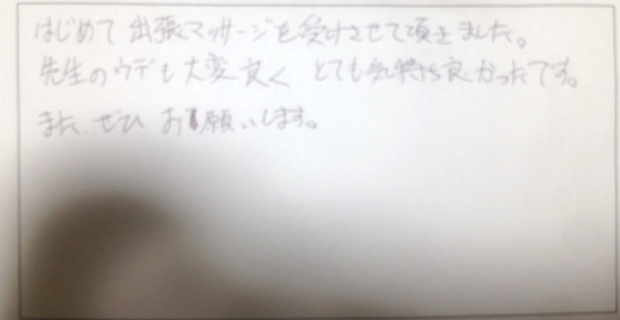 はじめて 出張マッサージを受けさせて頂きました。
先生のウデも大変良く とても気持ち良かったです。
また ぜひ お願いします。